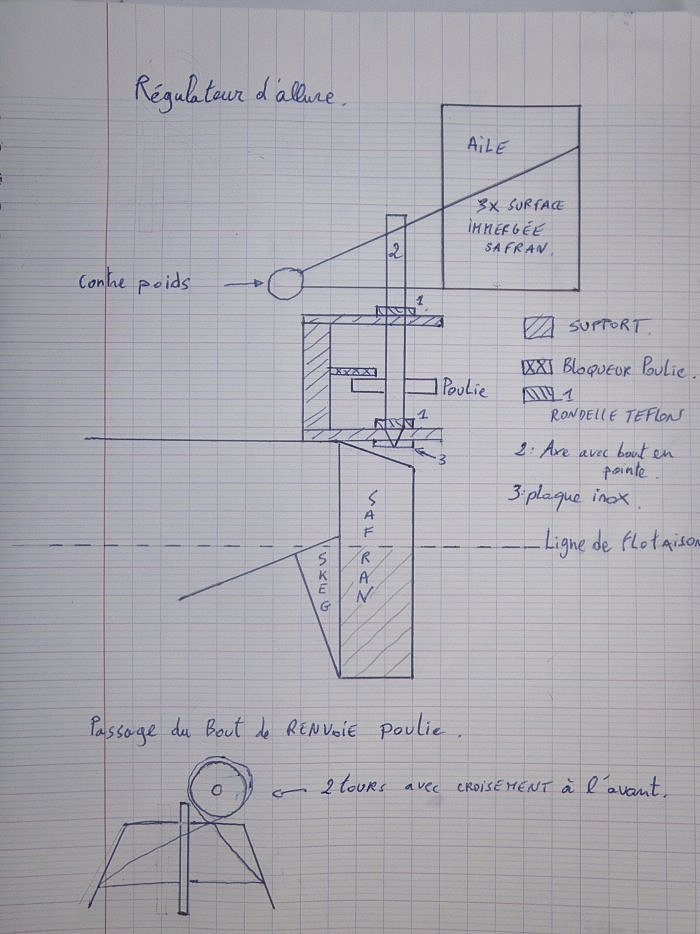 Régulateur d'allure.
AiLE
3X SURFACE
iMMERGÉE
SAFRAN.
2
Contre poids
1
SUPPORT.
XX Bloqueur Poulie.
Poulie
1
RONDELLE TEFLON
1
2: Axe avec bout en
pointe.
3
3: plaque inox.
SAFRAN
Ligne de flotaison
SKEG
Passage du Bout de RENVOiE poulie.
2 tours avec CROISEMENT à l'avant.